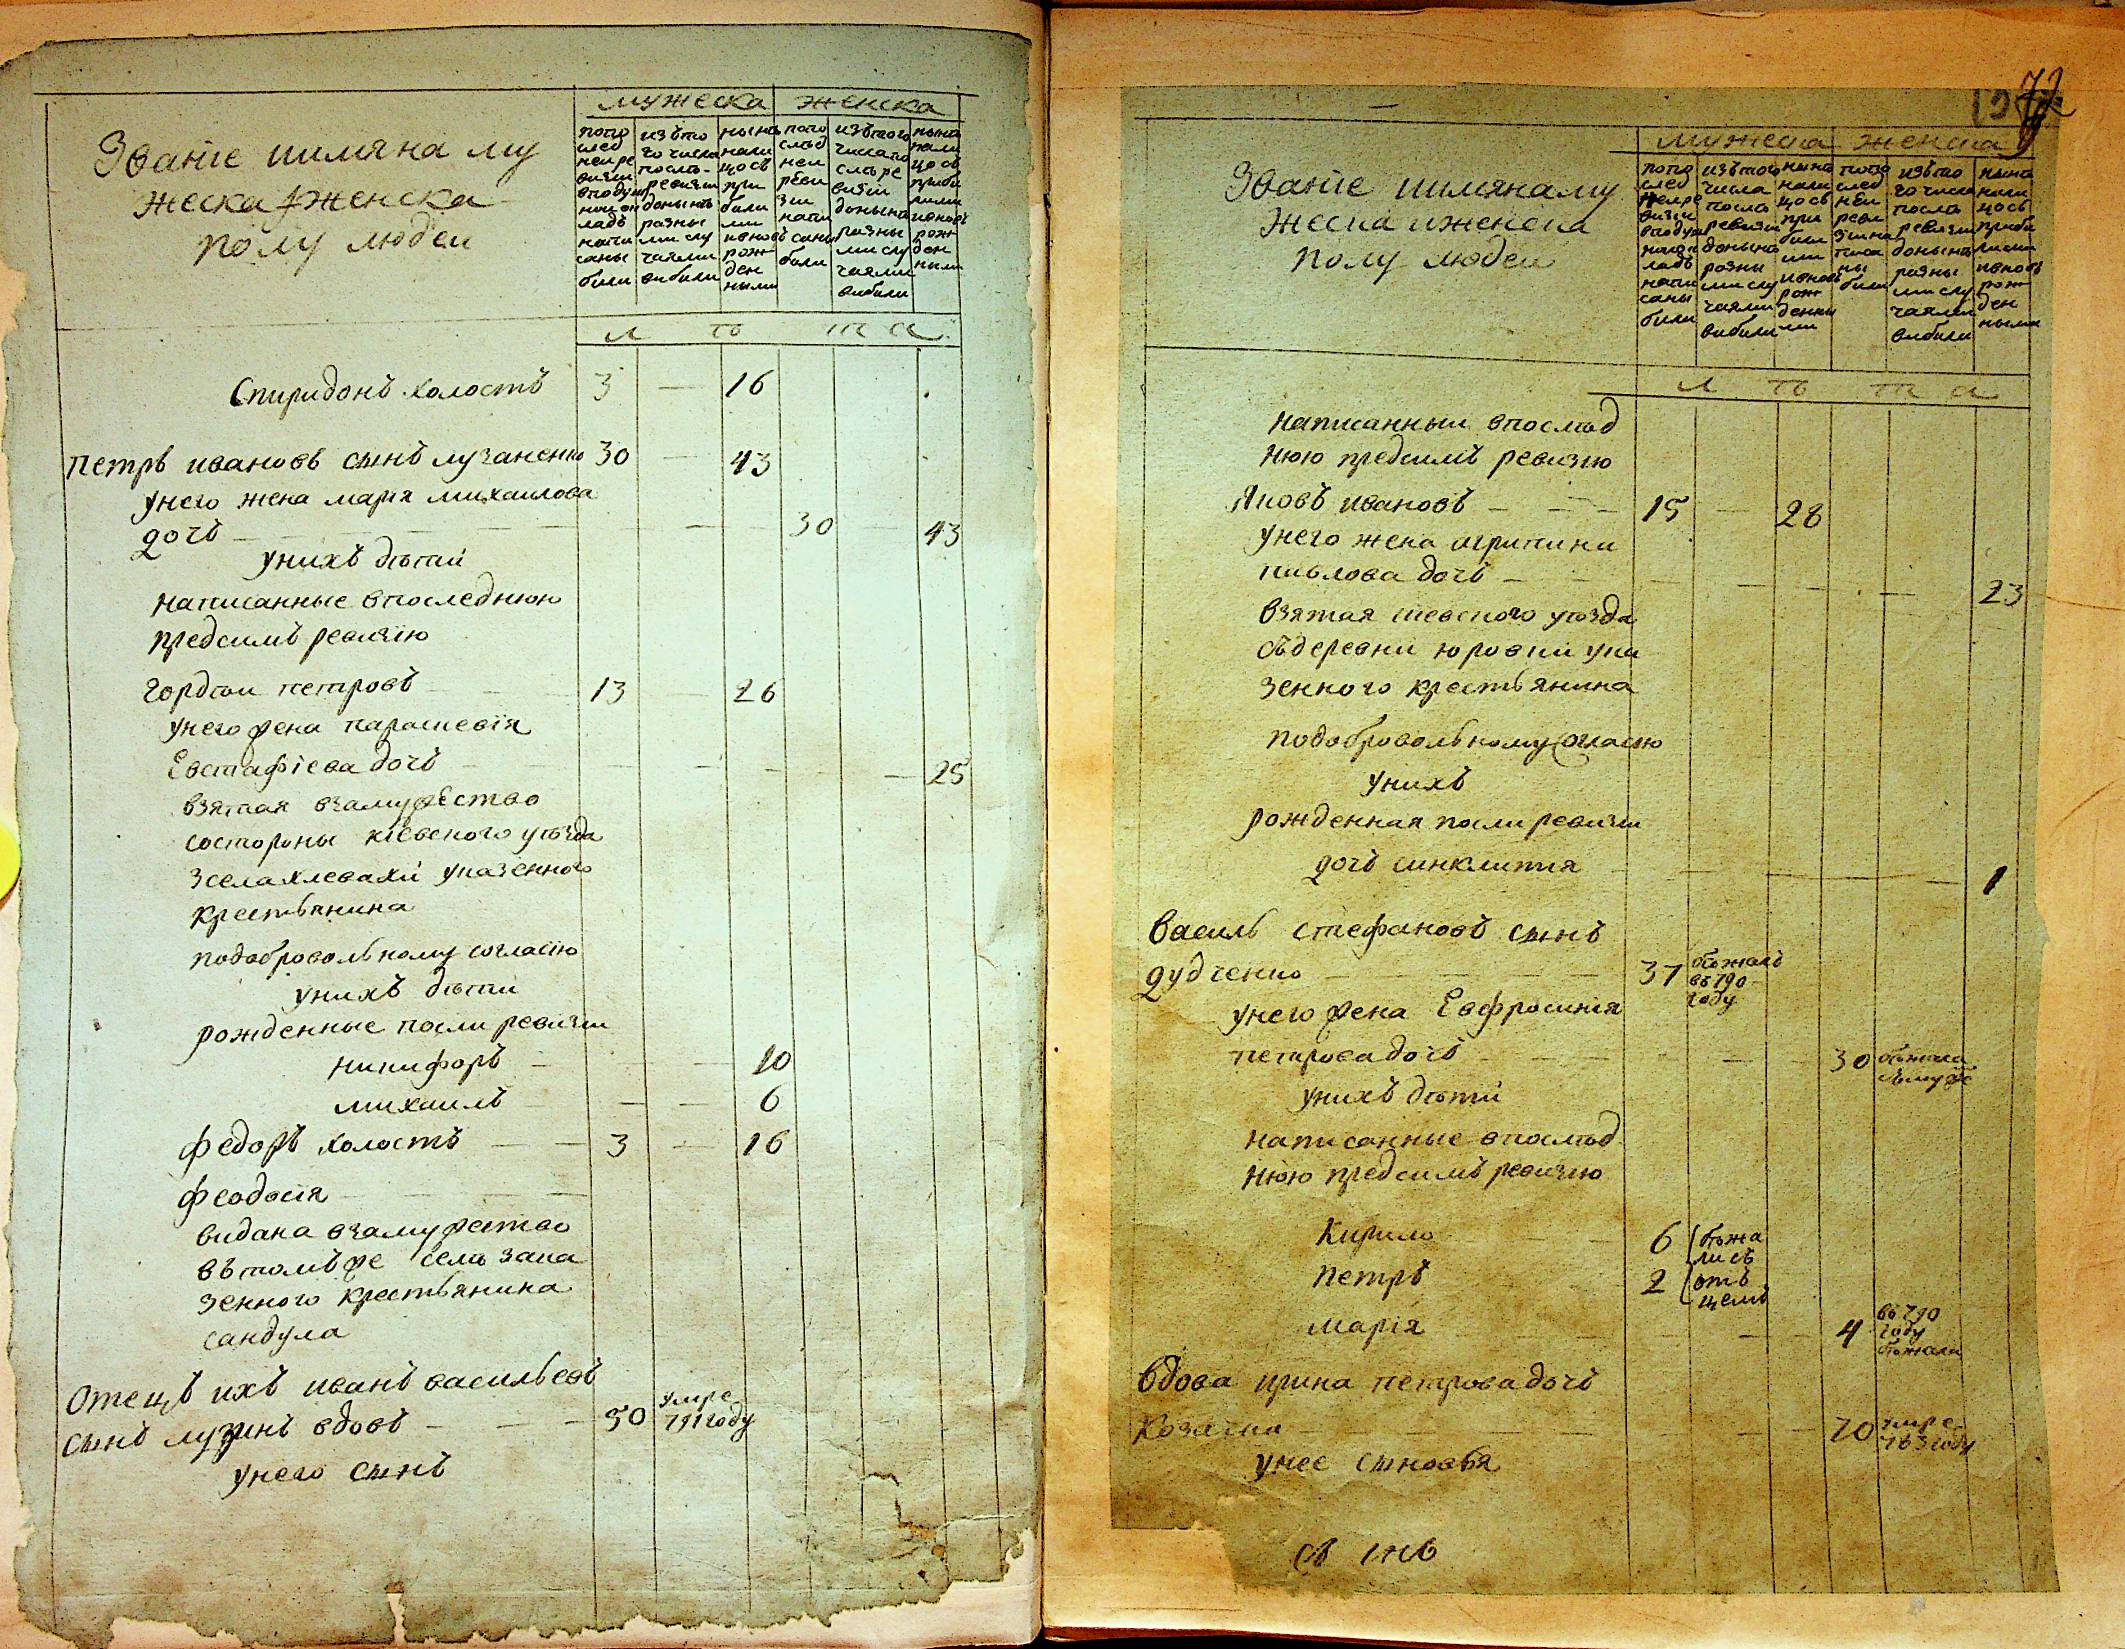 мужеска женска
Званїе иимяна му
жеска иженска
полу людеи
попо
след
неире
визїи
вподуш
ладъ
напи
саны
били
изъто
го числа
послъ
ревизїи
донынъ
разны
ми слу
чаями
вибили
нынъ
нали
цосъ
при
были
ми
ивновъ
рож
ден
ными
попо
слъд
неи
реви
зїи
напи
саны
били
изътого
числапо
слъ ре
визїи
донынъ
разны
ми слу
чаями
вибили
нынъ
нали
цосъ
приби
лими
ивновъ
рож
ден
ными
л ъ т а
Спиридонъ холостъ 3 — 16
Петръ ивановъ сынъ лузаненко 30 — 43
унего жена марїя михаилова
дочъ — — — 30 — 43
унихъ дъти
написанные впоследнюю
предсимъ ревизїю
Гордъи петровъ 13 — 26
унего жена параскевїя
Евстафїева дочъ — — — — 25
взятая взамужество
состороны кїевского уъзда
зселахлевахи указенного
крестьянина
подобровольному согласїю
унихъ дъти
рожденные посли ревизїи
никифоръ — — 10
михаилъ — — 6
федоръ холостъ — — 3 — 16
феодосїя — — —
видана взамужество
втомъже селъ зака
зенного крестьянина
сандула
Отецъ ихъ иванъ васильевъ
сынъ лузинъ вдовъ — — 50 умре
791году
унего сынъ
72
мужеска женска
Званїе иимянаму
жеска иженска
полу людеи
попо
след
неире
визїи
вподуш
ладъ
напи
саны
били
изътого
числа
послъ
ревизїи
донынъ
разны
ми слу
чаями
вибили
нынъ
нали
цосъ
при
били
ми
ивновъ
рож
денны
ми
попо
след
неи
реви
зїина
писа
ны
били
изъто
го числа
послъ
ревизїи
донынъ
разны
ми слу
чаями
вибили
нынъ
нали
цосъ
приби
лими
ивновъ
рож
ден
ными
л ъ т а
написанныи впослъд
нюю предсимъ ревизїю
Яковъ ивановъ — — — 15 — 28
унего жена агрипина
павлова дочъ — — — — — 23
взятая кїевского уъзда
сдеревни юровки ука
зенного крестьянина
подобровольному согласїю
унихъ
рожденная посли ревизїи
дочъ синклитїя — — — — — 1
Василь стефановъ сынъ
дудченко — — 37 бъжалъ
въ790
году
унего жена Евфросинїя
петрова дочъ — — — 30 бъжала
смуже
унихъ дъти
написанные впослъд
нюю предсимъ ревизїю
Кирило — 6 бъжа
лисъ
Петръ — 2 отъ
цемъ
марїя — — — 4 въ790
году
бъжала
вдова ирина петрова дочъ
Козачка — — — 70 умре
783году
унее сыновья